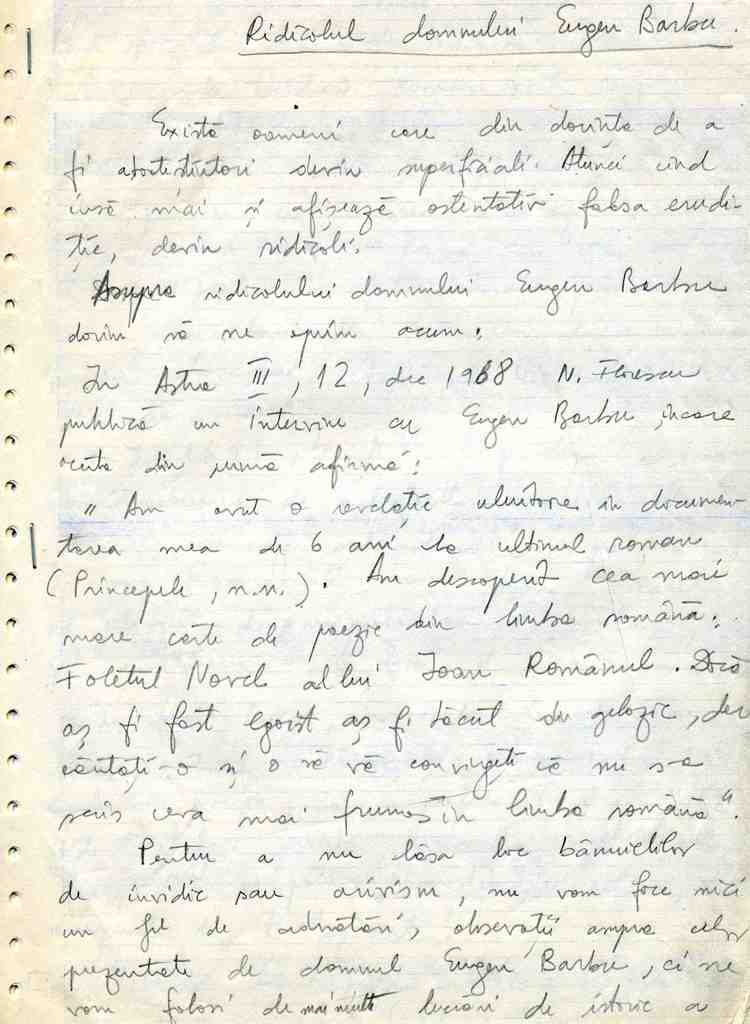 Ridicolul domnului Eugen Barbu.
Există oameni care din dorința de a
fi atotștiutori devin superficiali. Atunci cînd
însă mai și afișează ostentativ falsa erudi-
ție, devin ridicoli.
Asupra ridicolului domnului Eugen Barbu
dorim să ne oprim acum.
În Astra III, 12, dec 1968 N. Florescu
publică un interviu cu Eugen Barbu, în care
acesta din urmă afirmă:
" Am avut o revelație uluitoare în documen-
tarea mea de 6 ani la ultimul roman
(Princepele, n.n.). Am descoperit cea mai
mare carte de poezie din limba română:
Foletul Novel al lui Ioan Românul. Dacă
aș fi fost egoist aș fi tăcut din gelozie, dar
căutați-o și o să vă convingeți că nu s-a
scris ceva mai frumos în limba română".
Pentru a nu lăsa loc bănuielilor
de invidie sau arivism, nu vom face nici
un fel de observații asupra celor
prezentate de domnul Eugen Barbu, ci ne
vom folosi de mai multe lucrări de istorie a